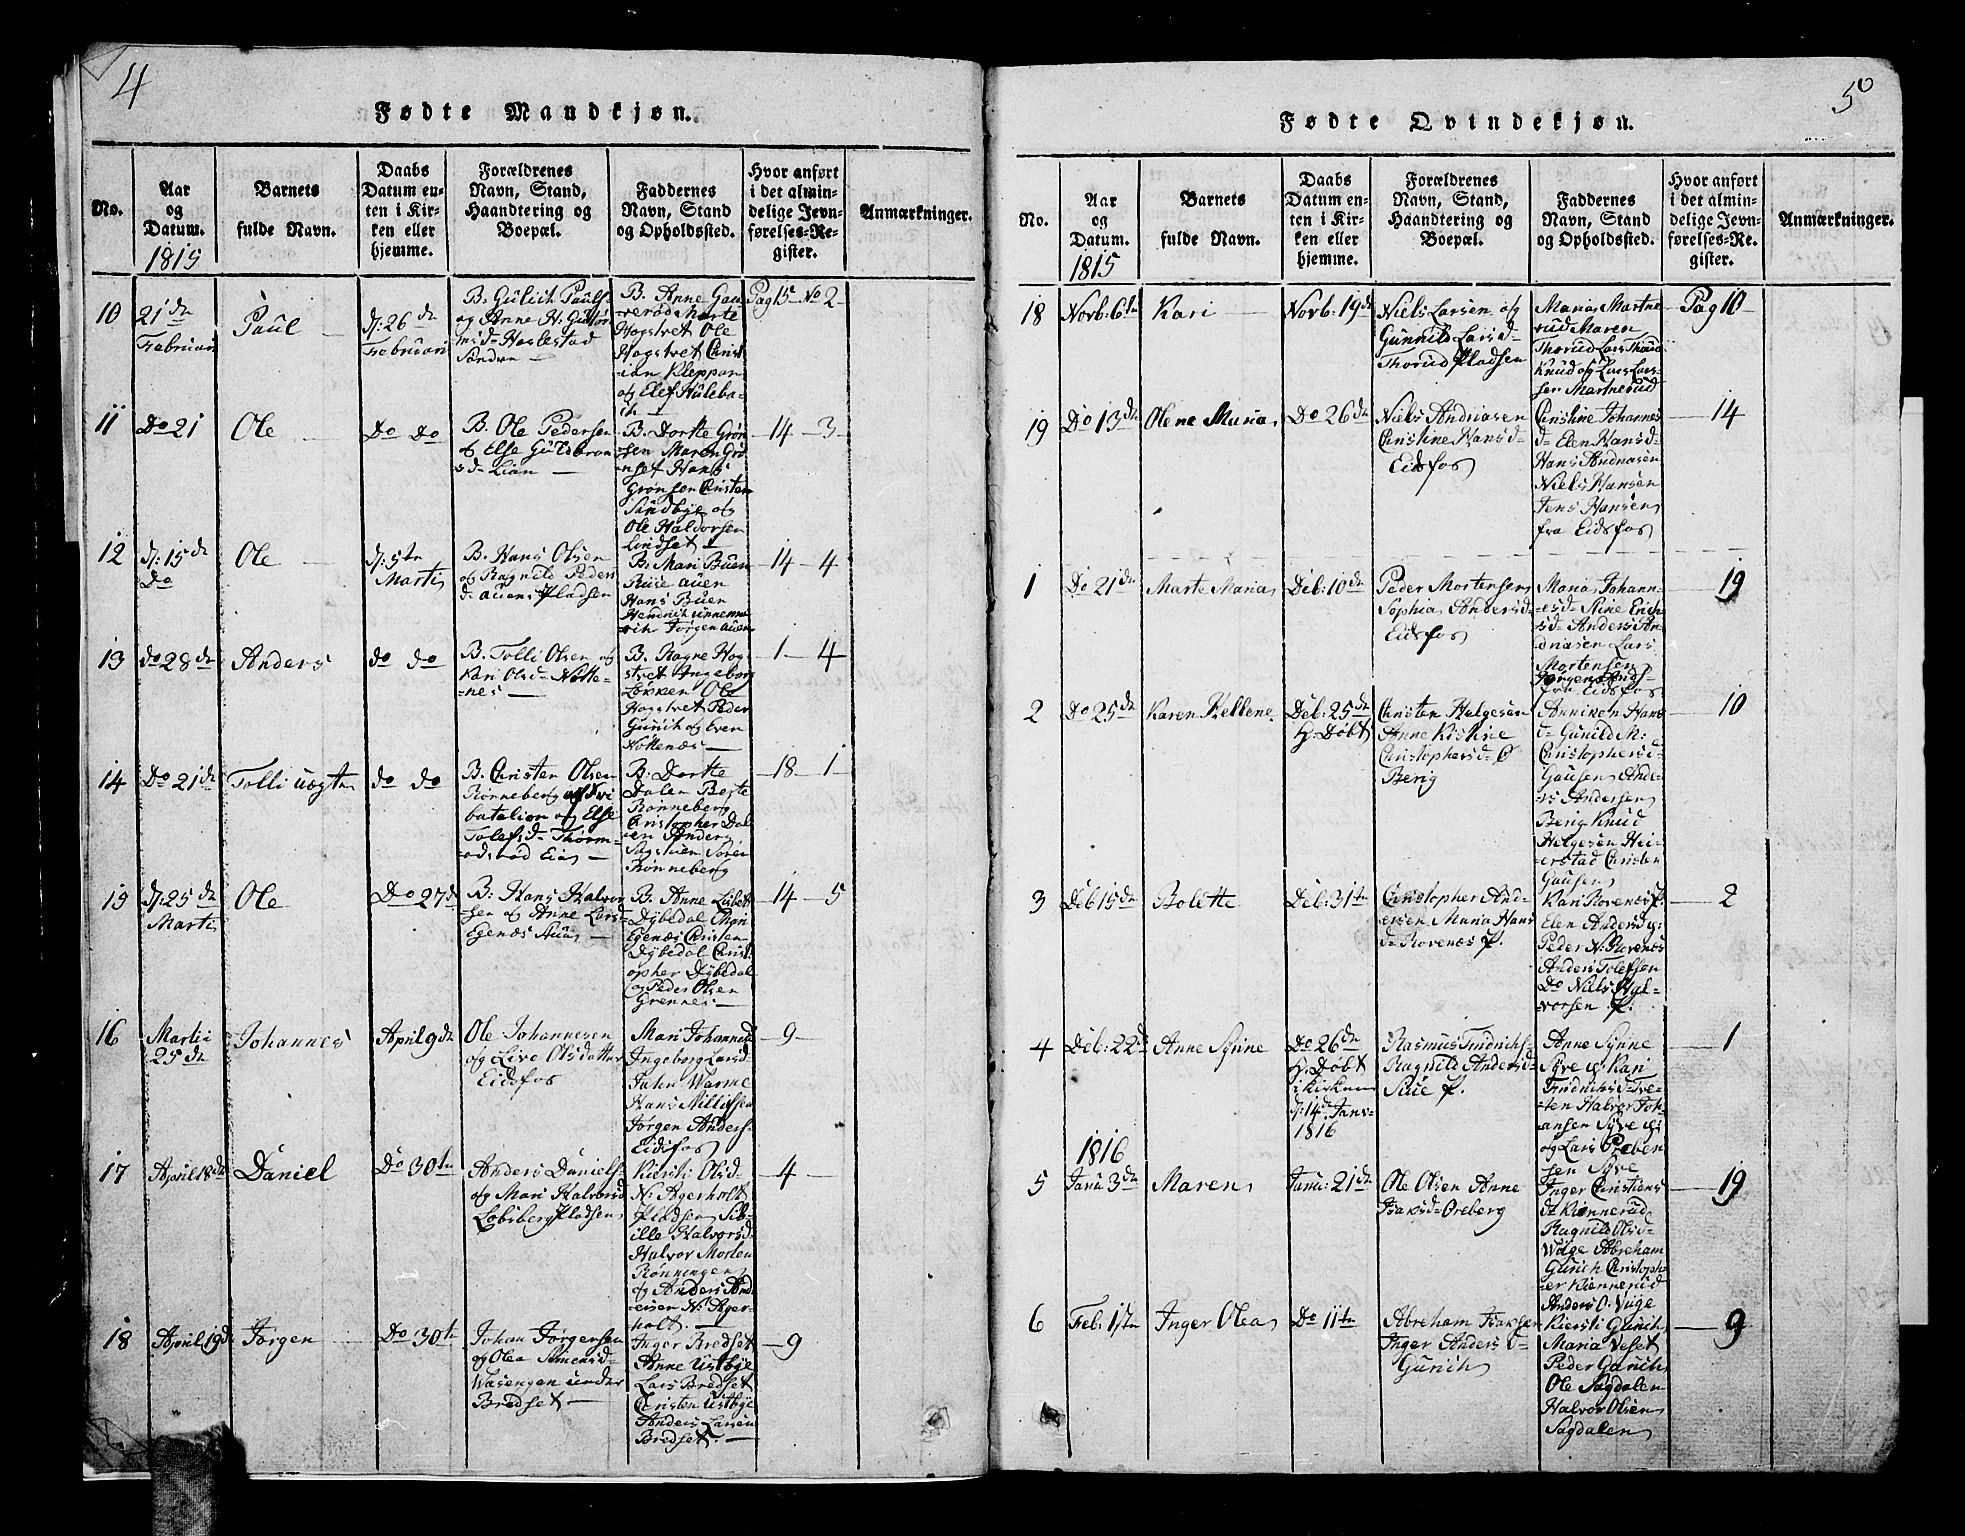 4
Fødte Mandkjøn.
No.
Aar
og
Datum.
1815
Barnets
fulde Navn.
Daabs
Datum en-
ten i Kir-
ken eller
hjemme.
Forældrenes
Navn, Stand,
Haandtering og
Boepæl.
Faddernes
Navn, Stand
og Opholdssted.
Hvor anført
i det almin-
delige Jevn-
førelses-Re-
gister.
Anmærkninger.
10
21 dn
Februari
Paul
d: 26 dn
Februari
B. Gulich Pauls-
og Anne H. Guttor
msd- Haslestad
Sandn
B. Anne Gau
rerød Marte
Hogstvet Ole
Hogstvet Christ
ian Kleppan
og Elef Hüleba-
ch
Pag 15 No 2
11
Do 21
Ole
Do Do
B. Ole Pedersen
og Else Guldbran
sd- Lian
B: Dorthe Grøn
sen Maren Grø
nset Hans
Grønsen Christen
Sandbye og
Ole Haldorsen
Lindset
14 3
12
d: 15 dn
Do
Ole
d: 5 tn
Marti
B. Hans Olsen
og Ragnild Peders
d- auens Pladsen
B: Mari Buen
Ruse auen
Hans Buen
Jørgen auen
14 4
13
do 28 dn
Anders
do do
B. Tolli Olsen og
Kari Olsd- Notte-
nes
B. Ragne Hog-
stvet Ingeborg
Løkken Ole
Hogstvet Peder
Gurich og Even
Nottenæs
1 4
14
Do 21 dn
Tolli uægtn
do do
B. Christen Olsen
Rønneberg af
batalion og Else
Tolefsd- Thorm-
odsrød Eia
B: Dorthe
Dalen Berte
Rønneberg
Christopher Dal
en Anders
Sagstuen Søren
Rønneberg
18 1
15
d: 25 dn
Marti
Ole
Do 27 d
B: Hans Halvor
sen og Anne Larsd-
Egenæs Aua
B. Anne Lisbeth
Dybedal
Egenæs Christen
Dybedal Christ
opher Dybedal
og Peder Olsen
Grennes
14 5
16
Martii
25 dn
Johannes
April 9 dn
Ole Johannesen
og Live Olsdatter
Eidsfos
Mari Johannesd
Ingeborg Larsd
John Warme
Hans Nillissen
Jørgen Anders-
Eidsfos
9
17
April 18 dn
Daniel
Do 30 tn
Anders Daniels-
og Mari Halvorsd
Løbsberg Pladsen
Kiersti Olsd-
N: Agerholt
Pladsen Sib-
ille Halvorsd
Halvor Morten
Rønningen
og Anders And-
ersen N: Ager-
holt.
4
18
April 19 d
Jørgen
Do 30 tn
Johan Jørgensen
og Olea Simensd-
Wasengen under
Bredset
Inger Bredset
Anne Ustbye
Lars Bredset
Christen Ustbye
Anders Larsen
Bredset.
9
5
Fødte Qvindekjøn.
No.
Aar
og
Datum.
1815
Barnets
fulde Navn.
Daabs
Datum en-
ten i Kir-
ken eller
hjemme.
Forældrenes
Navn, Stand,
Haandtering og
Boepæl.
Faddernes
Navn, Stand
og Opholdssted.
Hvor anført
i det almin-
delige Jevn-
førelses-Re.
gister.
Anmærkninger.
18
Novb: 6 tn
Kari
Novb: 19 dn
Niels Larsen og
Gunnild Larsd-
Thorud Pladsen
Maria Martne
rud Maren
Thorud Lars Thorud
Knud og Lars Lars-
sen Martnerud
Pag 10
19
Do 13 dn
Olene Maria
Do 26 dn
Niels Andriasen
Christine Hansd-
Eidsfos
Christine Johannes
d- Elen Hansd-
Hans Andriasen
Niels Hansen
Jens Hansen
fra Eidsfos
14
1
Do 21 dn
Marte Maria
Deb: 10 dn
Peder Mortensen
Sophia Andersd-
Eidsfos
Maria Johann-
esd- Stine Erich-
sd- Anders An-
driasen Lars
Mortensen
Jørgen Ands-
fra Eidsfos
19
2
Do 25 dn
Karen Hellene
Deb: 25 dn
H: Døbt
Christen Helgesen
Anne Kistine
Christophersd-
Berig
Anniken Hans
d- Gunild M:
Christophersd-
Gausen Ande-
rs Andersen
Berig Knud
Helgesen Hei-
erstad Christen
Gausen
10
3
Deb 15 dn
Bolette
Deb: 31 tn
Christopher And-
ersen Maria Hans
d- Rovenæs P.
Kari Rovenæs P.
Elen Andersd
Peder N. Rovenæs
Anders Tolefsen
Do Niels Hal-
vorsen P.
2
4
Deb: 22 dn
Anne Synne
Do 26 dn
H: Døbt
i kirken
d: 14 dn Jans-
1816
Rasmus Fridrichs-
Ragnild Andersd-
Rue P.
Anne Synne
Syve og Kari
Fridrichsd- Tve-
ten Halvor Joh-
ansen Syve
og Lars Preben
sen Syve
1
1816
5
Janu 3 dn
Maren
Janu: 21 dn
Ole Olsen Anne
Isaksd- Øreberg
Inger Christens
d- Kiønnerud
Ragnild Olsd-
Wiige Abreham
Gurich Christoph-
er Kiønnerud
Anders O. Viige
19
6
Feb. 1 tn
Inger Olea
Do 11 tn
Abreham Isaksen
Inger Andersd-
Gurich
Kiersti Gurich
Maria Veset
Peder Gurich
Ole Sagdalen
Halvor Olsen
Sagdalen
9